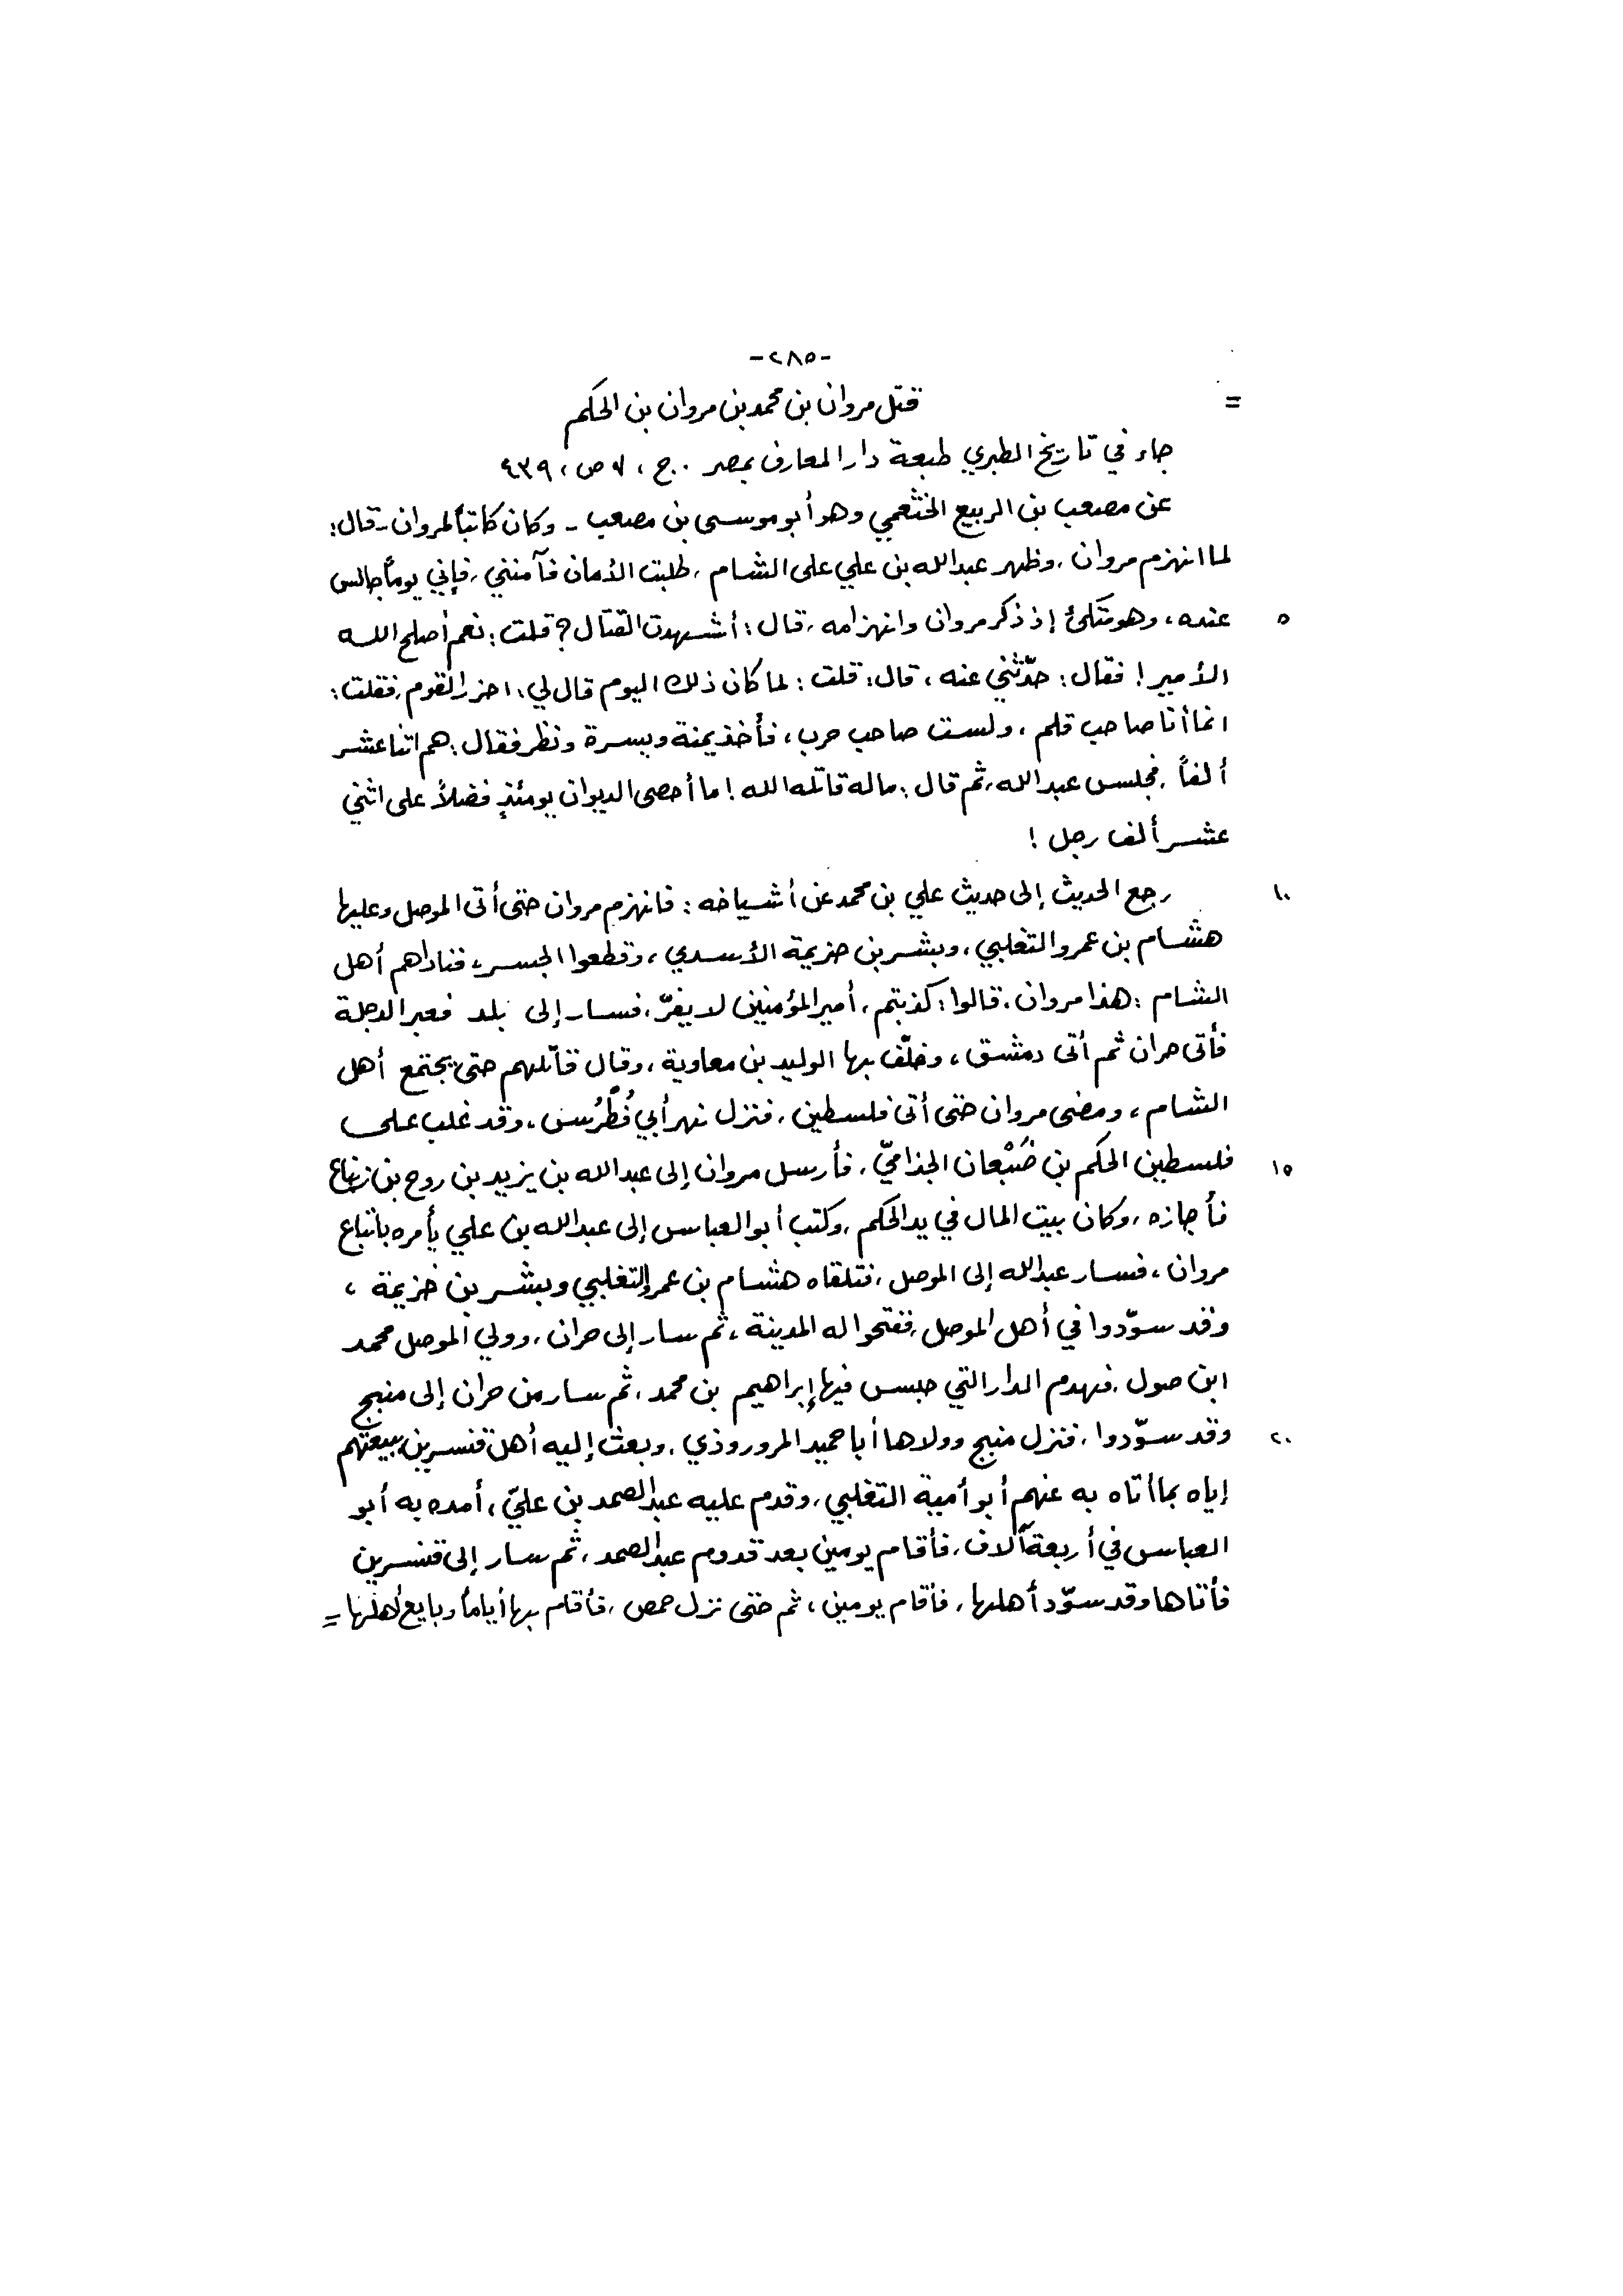 -٢٨٥-
= قتل مروان بن محمد بن مروان بن الحكم
جاء في تاريخ الطبري طبعة دار المعارف بمصر . ج ، ٧ ص ، ٤٣٩
عن مصعب بن الربيع الخثعمي وهو أبو موسى بن مصعب - وكان كاتباً لمروان - قال :
لما انهزم مروان ، وظهر عبدالله بن علي على الشام ، طلبت الأمان فآمنني ، فإني يوماً جالس
٥ عنده ، وهو متكئ إذ ذكر مروان وانهزامه ، قال : أشهدت القتال ؟ قلت : نعم أصلح الله
الأمير ! فقال : حدّثني عنه ، قال : قلت : لما كان ذلك اليوم قال لي : احزر القوم ، فقلت :
انما أنا صاحب قلم ، ولست صاحب حرب ، فأخذ يمنة ويسرة ونظر فقال : هم اثنا عشر
ألفاً . فجلس عبدالله ، ثم قال : ماله قاتله الله ! ما أحصى الديوان يومئذٍ فضلاً على اثني
عشر ألف رجل !
١٠ رجع الحديث إلى حديث علي بن محمد عن أشياخه : فانهزم مروان حتى أتى الموصل وعليها
هشام بن عمرو التغلبي ، وبشر بن خزيمة الأسدي ، وقطعوا الجسر ، فناداهم أهل
الشام : هذا مروان . قالوا : كذبتم ، أمير المؤمنين لا يفرّ ، فسار إلى بلد فعبر الدجلة
فأتى حران ثم أتى دمشق ، وخلّف بها الوليد بن معاوية ، وقال قاتلهم حتى يجتمع أهل
الشام ، ومضى مروان حتى أتى فلسطين ، فنزل نهر أبي فُطْرُس ، وقد غلب على
١٥ فلسطين الحكم بن ضَبْعان الجذاميّ ، فأرسل مروان إلى عبدالله بن يزيد بن روح بن زنباع
فأجازه ، وكان بيت المال في يد الحكم ، وكتب أبو العباس إلى عبدالله بن علي يأمره باتباع
مروان ، فسار عبدالله إلى الموصل ، فتلقاه هشام بن عمرو التغلبي وبشر بن خزيمة ،
وقد سوّدوا في أهل الموصل ، ففتحوا له المدينة ، ثم سار إلى حران ، وولي الموصل محمد
ابن صول . فهدم الدار التي حبس فيها إبراهيم بن محمد ، ثم سار من حران إلى منبج
٢٠ وقد سوّدوا ، فنزل منبج وولاها أبا حميد المروروذي ، وبعث إليه أهل قنسرين ببيعتهم
إياه بما أتاه به عنهم أبو أمية التغلبي ، وقدم عليه عبدالصمد بن عليّ ، أمده به أبو
العباس في أربعة آلاف ، فأقام يومين بعد قدوم عبدالصمد ، ثم سار إلى قنسرين
فأتاها وقد سوّد أهلها ، فأقام يومين ، ثم حتى نزل حمص ، فأقام بها أياماً وبايع أهلها =